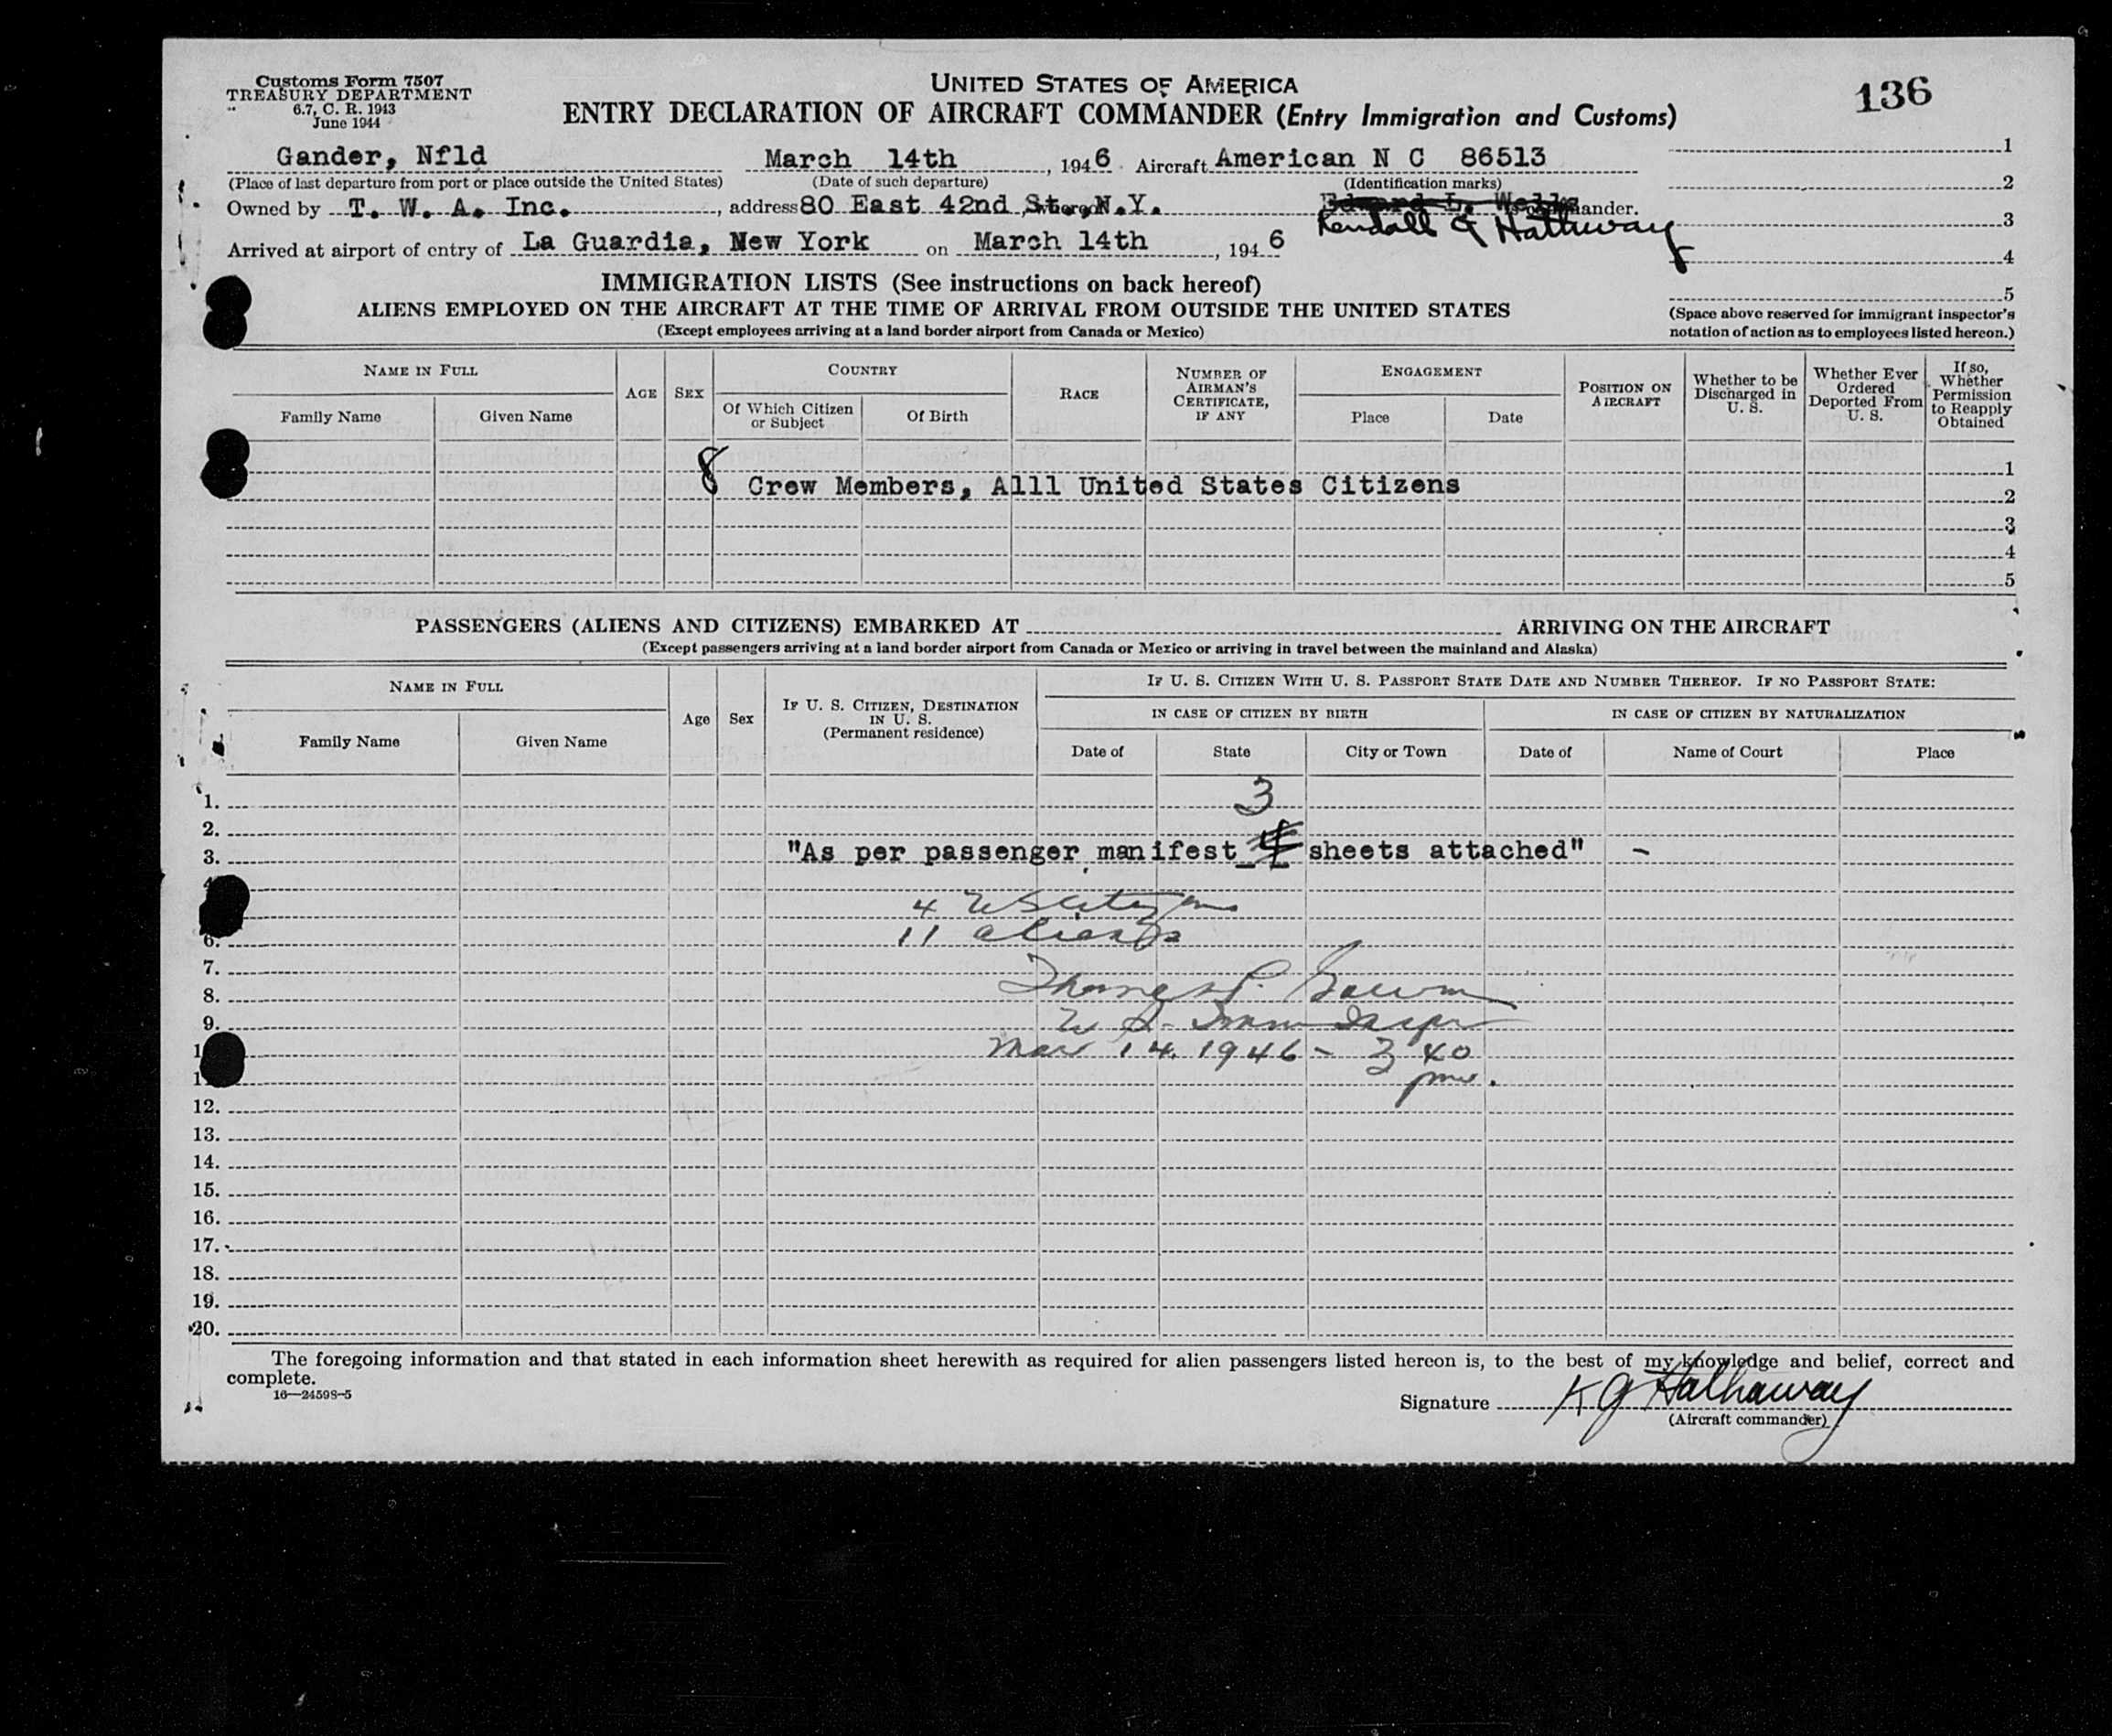 Customs Form 7507
TREASURY DEPARTMENT
6.7, C. R. 1943
June 1944
UNITED STATES OF AMERICA
ENTRY DECLARATION OF AIRCRAFT COMMANDER (Entry Immigration and Customs)
136
Gander, Nfld March 14th, 1946. Aircraft American N C 86513
(Place of last departure from port or place outside the United States) (Date of such departure) (Identification marks)
Owned by T. W. A. Inc., address 80 East 42nd St., N.Y. Edward L. Wells commander.
Kendall G Hathaway
Arrived at airport of entry of La Guardia, New York on March 14th, 1946
1
2
3
4
5
(Space above reserved for immigrant inspector's
notation of action as to employees listed hereon.)
IMMIGRATION LISTS (See instructions on back hereof)
ALIENS EMPLOYED ON THE AIRCRAFT AT THE TIME OF ARRIVAL FROM OUTSIDE THE UNITED STATES
(Except employees arriving at a land border airport from Canada or Mexico)
NAME IN FULL
Family Name Given Name
AGE
SEX
COUNTRY
Of Which Citizen or Subject
Of Birth
RACE
NUMBER OF AIRMAN'S CERTIFICATE, IF ANY
ENGAGEMENT
Place Date
POSITION ON AIRCRAFT
Whether to be Discharged in U. S.
Whether Ever Ordered Deported From U. S.
If so, Whether Permission to Reapply Obtained
1
8 Crew Members, Alll United States Citizens
2
3
4
5
PASSENGERS (ALIENS AND CITIZENS) EMBARKED AT ARRIVING ON THE AIRCRAFT
(Except passengers arriving at a land border airport from Canada or Mexico or arriving in travel between the mainland and Alaska)
NAME IN FULL
Family Name Given Name
Age
Sex
IF U. S. CITIZEN, DESTINATION IN U. S. (Permanent residence)
IF U. S. CITIZEN WITH U. S. PASSPORT STATE DATE AND NUMBER THEREOF. IF NO PASSPORT STATE:
IN CASE OF CITIZEN BY BIRTH IN CASE OF CITIZEN BY NATURALIZATION
Date of State City or Town Date of Name of Court Place
1. 3
2.
3. "As per passenger manifest 4 sheets attached" -
4 US Citizens
6. 11 aliens
7.
8. Thomas P.
9. U S. Imm Inspr
Mar 14. 1946 - 3 40
pm.
12.
13.
14.
15.
16.
17.
18.
19.
20.
The foregoing information and that stated in each information sheet herewith as required for alien passengers listed hereon is, to the best of my knowledge and belief, correct and
complete.
16—24598-5
Signature K G Hathaway
(Aircraft commander)